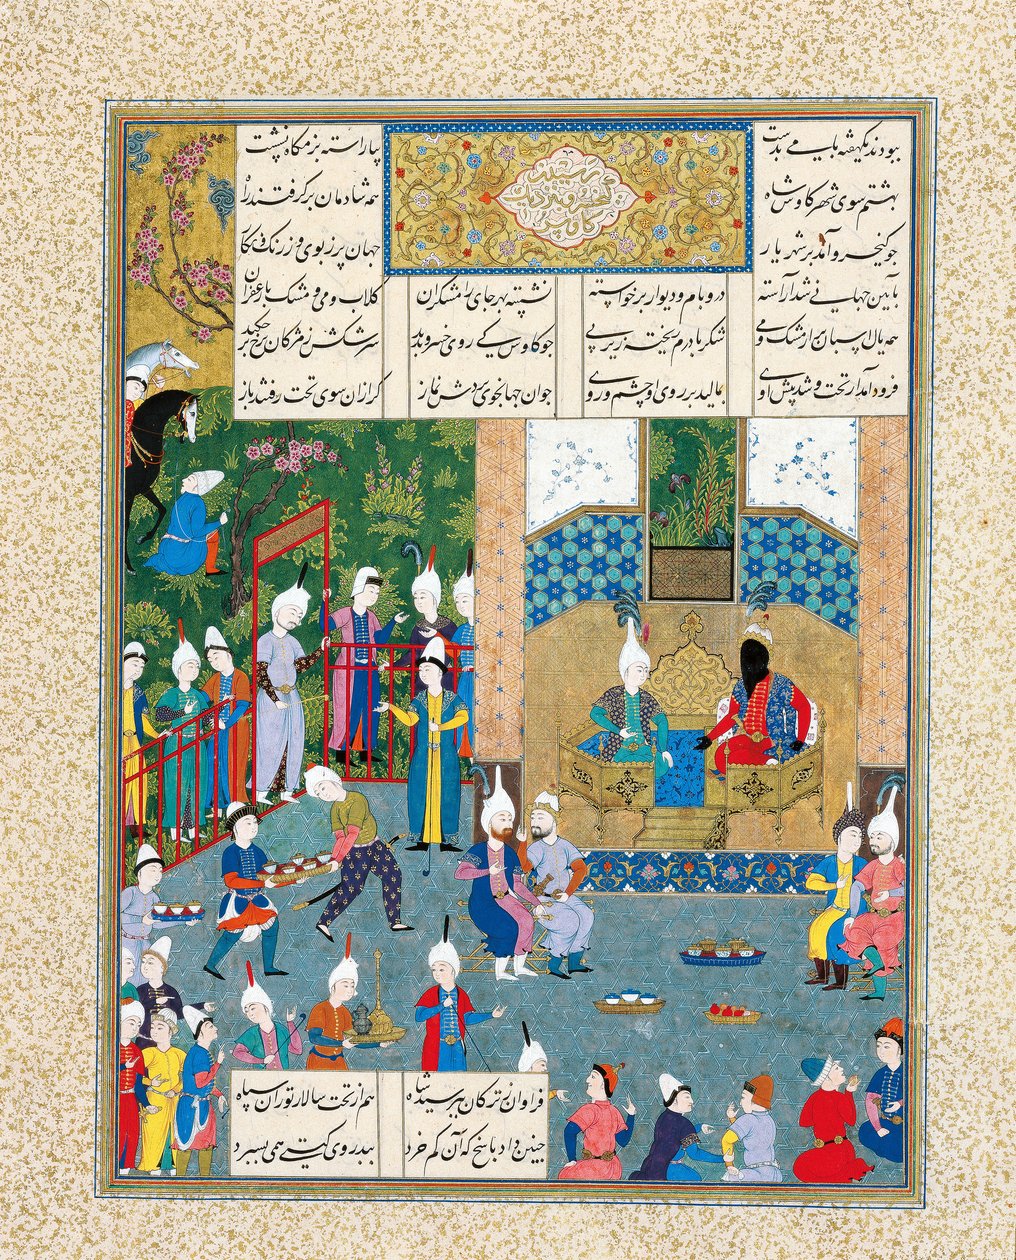 ببودند یک هفته با می بدست
بیاراسته بزمگاه نشست
بهشتم سوی شهر کاوس شاه
همه شادمان برگرفتند راه
چو کیخسرو آمد بر شهریار
جهان پر ز بوی و ز رنگ و نگار
بآیین جهانی شد آراسته
در و بام و دیوار پر خواسته
نشسته بهر جای رامشگران
گلاب و می و مشک با زعفران
همه یال اسپان پر از مشک و می
شکر با درم ریخته زیر پی
چو کاوس کی روی خسرو بدید
سرشکش ز مژگان برخ بر چکید
فرود آمد از تخت و شد پیش اوی
بمالید بر روی او چشم و روی
جوان جهانجوی بردش نماز
گرازان سوی تخت رفتند باز
فراوان ز ترکان بپرسید شاه
هم از تخت سالار توران سپاه
چنین داد پاسخ که آن کم خرد
ببد روی گیتی همی بسپرد